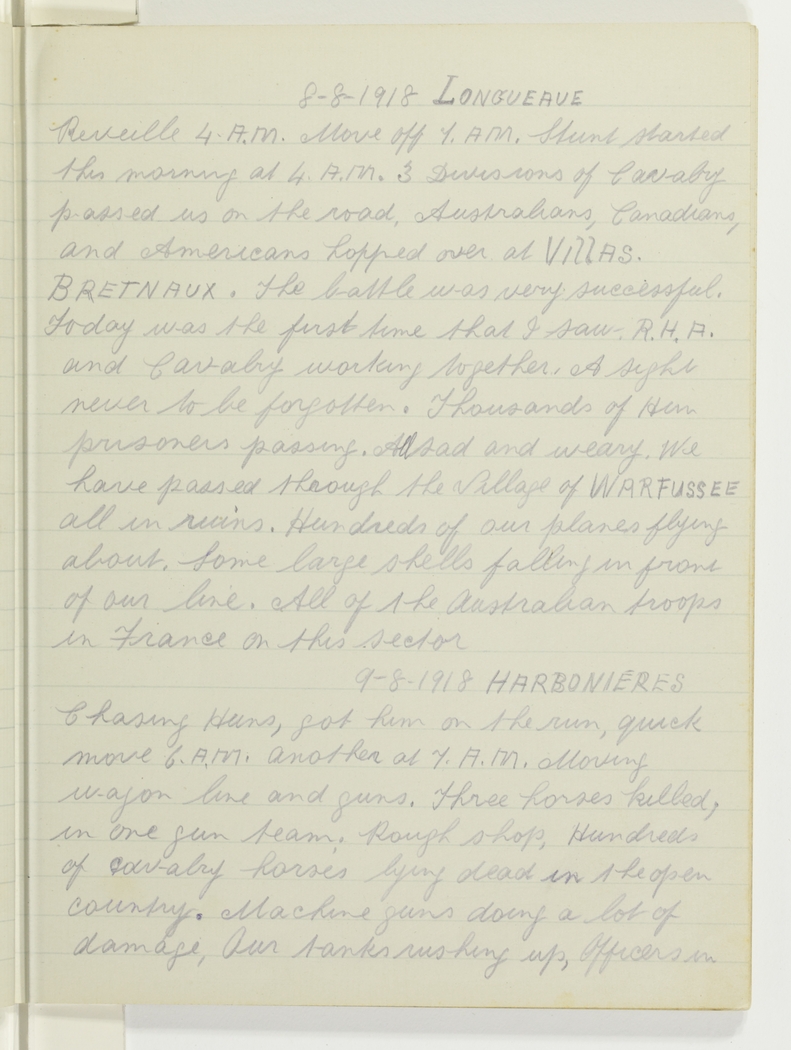 8-8-1918 LONGUEAUE
Reveille 4. A.M. Move off 7. A.M. Stunt started
this morning at 4. A.M. 3 Divisions of Cavalry
passed us on the road, Australians, Canadians,
and Americans hopped over at VIllAS.
BRETNAUX. The battle was very successful.
Today was the first time that I saw R.H.A.
and Cavalry working together. A sight
never to be forgotten. Thousands of Hun
prisoners passing. All sad and weary. We
have passed through the Village of WARFUSSEE
all in ruins. Hundreds of our planes flying
about. Some large shells falling in front
of our line. All of the Australian troops
in France on this sector
9-8-1918 HARBONIÉRES
Chasing Huns, got him on the run, quick
move 6. A.M. another at 7. A.M. Moving
wagon line and guns. Three horses killed,
in one gun team. Rough shop, Hundreds
of cavalry horses lying dead in the open
country. Machine guns doing a lot of
damage, Our tanks rushing up, Officers in